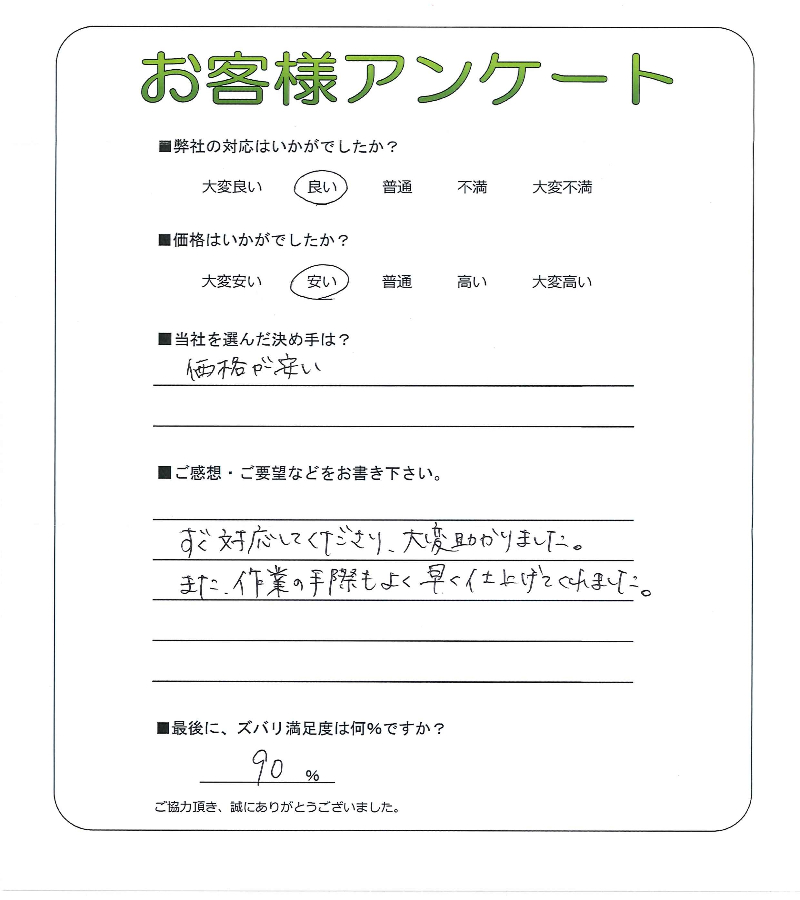 お客様アンケート
■弊社の対応はいかがでしたか？
大変良い 良い 普通 不満 大変不満
■価格はいかがでしたか？
大変安い 安い 普通 高い 大変高い
■当社を選んだ決め手は？
価格が安い
■ご感想・ご要望などをお書き下さい。
すぐ対応してくださり、大変助かりました。
また、作業の手際もよく早く仕上げてくれました。
■最後に、ズバリ満足度は何%ですか？
90 %
ご協力頂き、誠にありがとうございました。